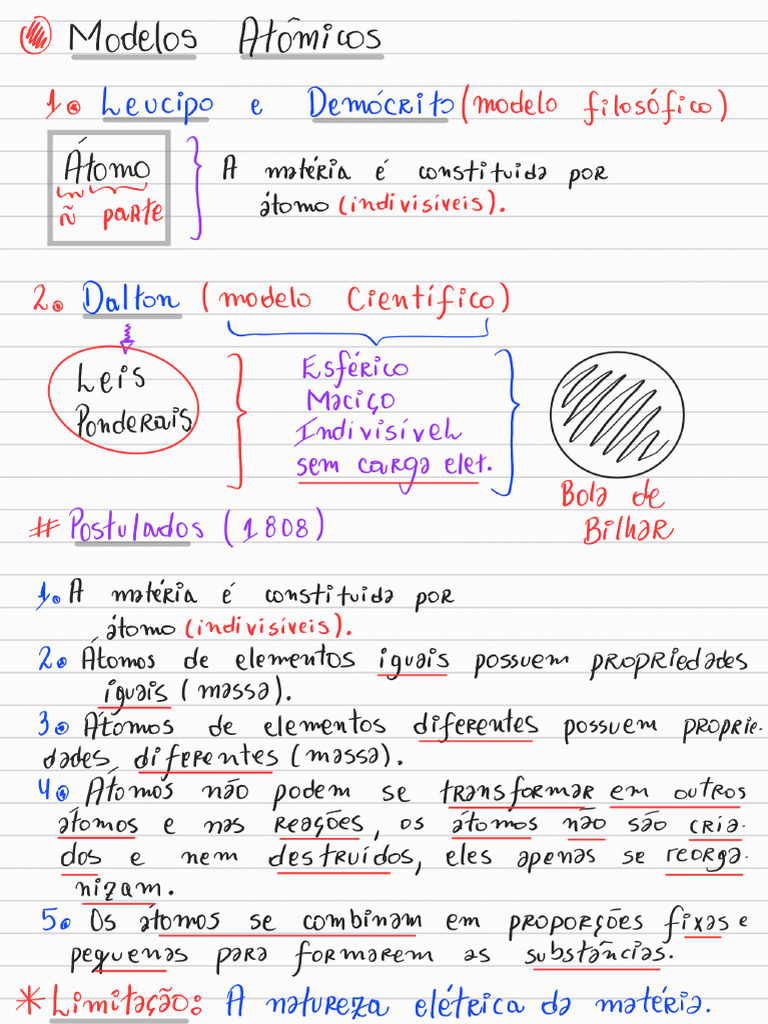 Modelos Atômicos
1. Leucipo e Demócrito (modelo filosófico)
Átomo
ñ parte
A matéria é constituida por
átomo (indivisíveis).
2. Dalton (modelo Científico)
Leis
Ponderais
Esférico
Maciço
Indivisível
sem carga elet.
Bola de
Bilhar
# Postulados (1808)
1. A matéria é constituida por
átomo (indivisíveis).
2. Átomos de elementos iguais possuem propriedades
iguais (massa).
3. Átomos de elementos diferentes possuem proprie-
dades diferentes (massa).
4. Átomos não podem se transformar em outros
átomos e nas reações, os átomos não são cria-
dos e nem destruídos, eles apenas se reorga-
nizam.
5. Os átomos se combinam em proporções fixas e
pequenas para formarem as substâncias.
* Limitação: A natureza elétrica da matéria.